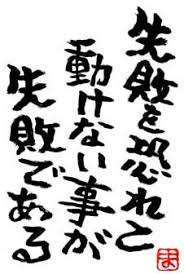 失敗を恐れて
動けない事が
失敗である